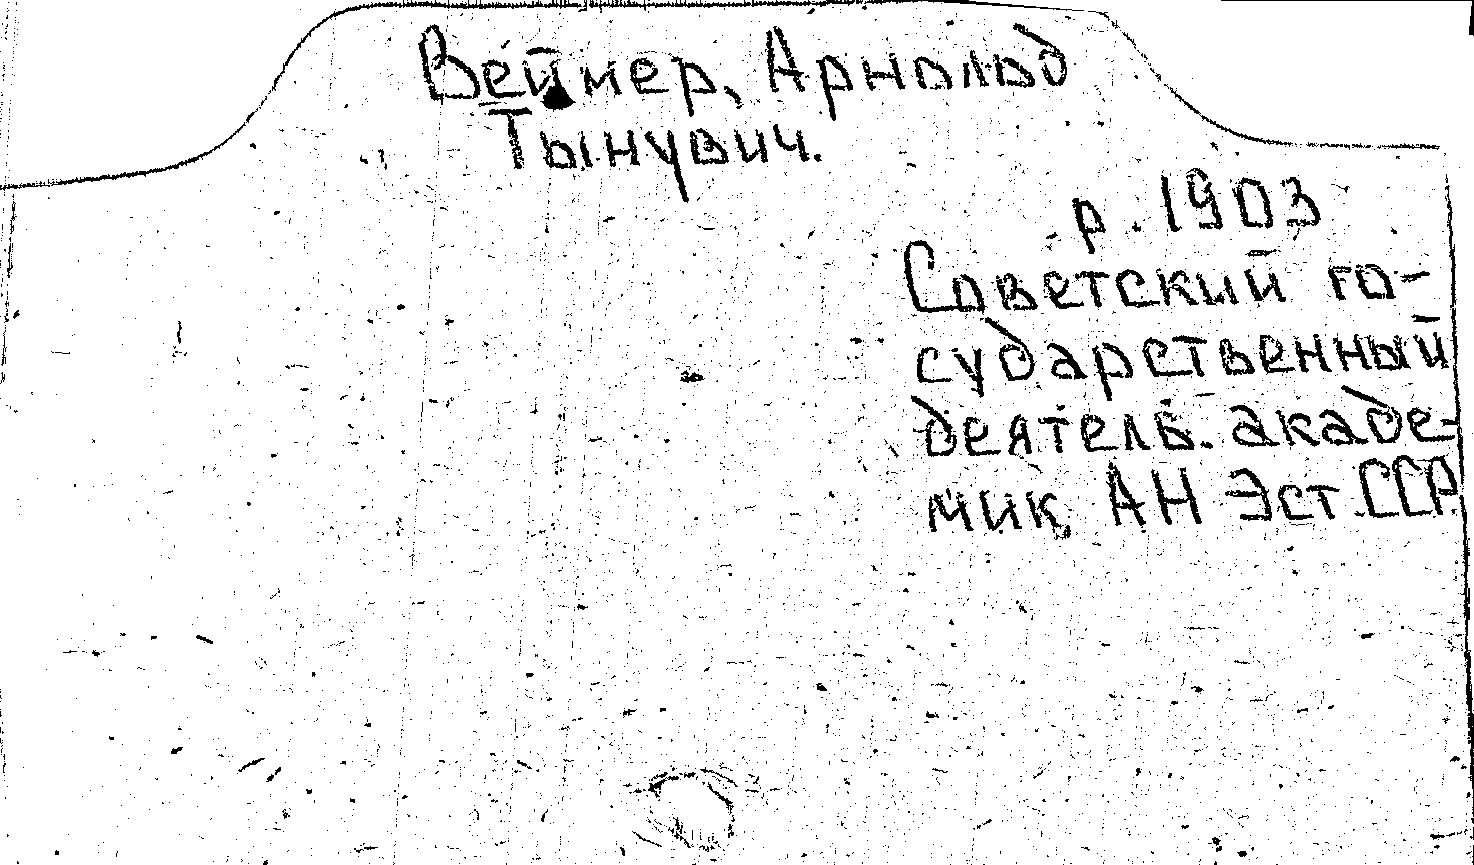 Ве́ймер, Арнольд
Тынувич.
р. 1903
Советский го-
сударственный
деятель. акаде-
мик АН Эст.ССР.